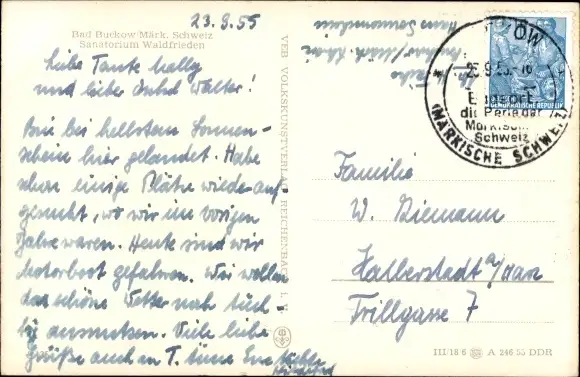 23.9.55
Bad Buckow Märk. Schweiz
Sanatorium Waldfrieden
Liebe Tante Mally
und lieber Onkel Walter!
Sind bei hellstem Sonnen-
schein hier gelandet. Habe
schon einige Plätze wieder auf-
gesucht, wo wir im vorigen
Jahre waren. Heute sind wir
Motorboot gefahren. Wir wollen
das schöne Wetter noch tüch-
tig ausnutzen. Viele liebe
Grüße auch an T.
VEB VOLKSKUNSTVERLAG REICHENBACH I. V.
Haus Sonnenschein
BUCKOW
23.9.55
die Perle der
Märkischen
Schweiz
(MÄRKISCHE SCHWEIZ)
DEUTSCHE DEMOKRATISCHE REPUBLIK
Familie
W. Niemann
Halberstadt a/Harz
Trillgasse 7
III/18 6 A 246 55 DDR